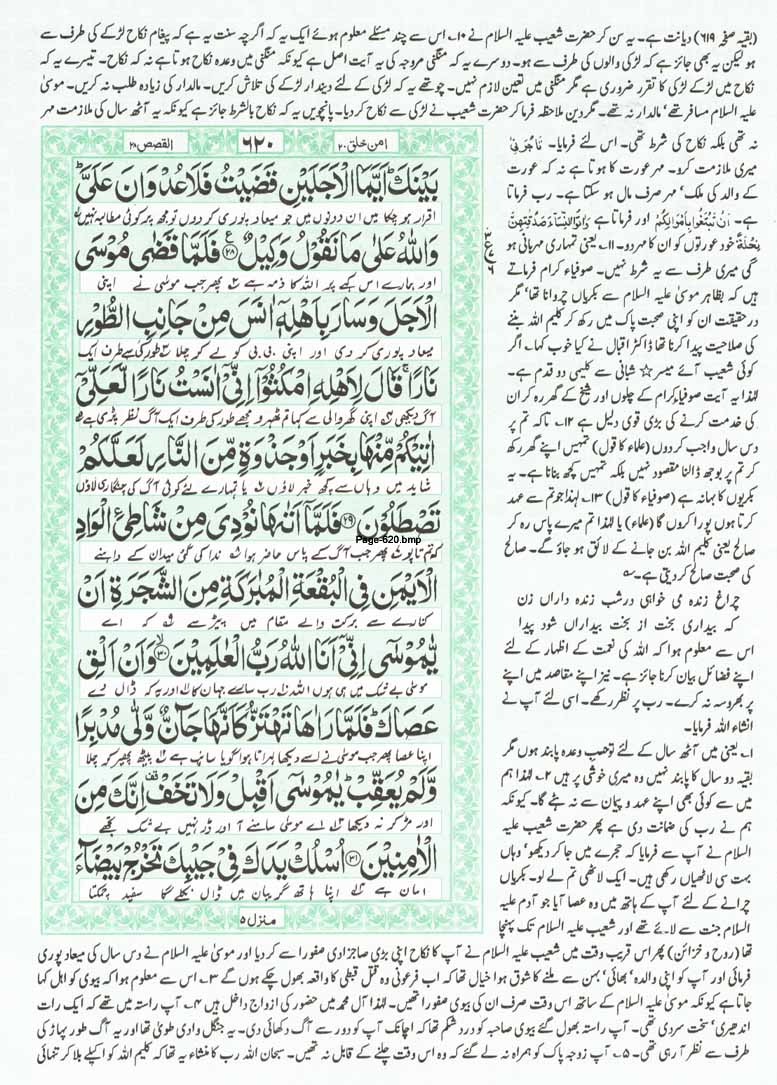 (بقیہ صفحہ ۶۱۹) دیانت ہے۔ یہ سن کر حضرت شعیب علیہ السلام نے ۱۰۔ اس سے چند مسئلے معلوم ہوئے ایک یہ کہ اگرچہ سنت یہ ہے کہ پیغام نکاح لڑکے کی طرف سے
ہو لیکن یہ بھی جائز ہے کہ لڑکی والوں کی طرف سے ہو۔ دوسرے یہ کہ منگنی مروجہ کی یہ آیت اصل ہے کیونکہ منگنی میں وعدہ نکاح ہوتا ہے نہ کہ نکاح۔ تیسرے یہ کہ
نکاح میں لڑکے لڑکی کا تقرر ضروری ہے مگر منگنی میں تعین لازم نہیں۔ چوتھے یہ کہ لڑکی کے لئے دیندار لڑکے کی تلاش کریں۔ مالدار کی زیادہ طلب نہ کریں۔ موسیٰ
علیہ السلام مسافر تھے' مالدار نہ تھے۔ مگر دین ملاحظہ فرما کر حضرت شعیب نے لڑکی سے نکاح کر دیا۔ پانچویں یہ کہ نکاح بالشرط جائز ہے کیونکہ یہ آٹھ سال کی ملازمت مہر
نہ تھی بلکہ نکاح کی شرط تھی۔ اس لئے فرمایا۔ تَاْجُرَنِیْ
میری ملازمت کرو۔ مہر عورت کا ہوتا ہے نہ کہ عورت
کے والد کی ملک' مہر صرف مال ہو سکتا ہے۔ رب فرماتا
ہے۔ اَنْ تَبْتَغُوْا بِاَمْوَالِكُمْ اور فرماتا ہے وَاٰتُوا النِّسَآءَ صَدُقٰتِهِنَّ
نِحْلَةً خود عورتوں کو ان کا مہر دو۔ ۱۱۔ یعنی تمہاری مہربانی ہو
گی میری طرف سے یہ شرط نہیں۔ صوفیاء کرام فرماتے
ہیں کہ بظاہر موسیٰ علیہ السلام سے بکریاں چروانا تھا' مگر
درحقیقت ان کو اپنی صحبت پاک میں رکھ کر کلیم اللہ بننے
کی صلاحیت پیدا کرنا تھا ڈاکٹر اقبال نے کیا خوب کہا۔ اگر
کوئی شعیب آئے میسر ☆ شبانی سے کلیمی دو قدم ہے۔
لہٰذا یہ آیت صوفیا کرام کے چلوں اور شیخ کے گھر رہ کر ان
کی خدمت کرنے کی بڑی قوی دلیل ہے ۱۲۔ تاکہ تم پر
دس سال واجب کر دوں (علماء کا قول) تمہیں اپنے گھر رکھ
کر تم پر بوجھ ڈالنا مقصود نہیں بلکہ تمہیں کچھ بنانا ہے۔ یہ
بکریوں کا بہانہ ہے (صوفیاء کا قول) ۱۳۔ لہٰذا جو تم سے عہد
کرتا ہوں پورا کروں گا (علماء) یا لہٰذا تم میرے پاس رہ کر
صالح یعنی کلیم اللہ بن جانے کے لائق ہو جاؤ گے۔ صالح
کی صحبت صالح کر دیتی ہے۔
چراغ زندہ می خواہی درشب زندہ داراں زن
کہ بیداری بخت از بخت بیداراں شود پیدا
اس سے معلوم ہوا کہ اللہ کی نعمت کے اظہار کے لئے
اپنے فضائل بیان کرنا جائز ہے۔ نیز اپنے مقاصد میں اپنے
پر بھروسہ نہ کرے۔ رب پر نظر رکھے۔ اسی لئے آپ نے
انشاء اللہ فرمایا۔
۱۔ یعنی میں آٹھ سال کے لئے تو حسب وعدہ پابند ہوں مگر
بقیہ دو سال کا پابند نہیں وہ میری خوشی پر ہیں ۲۔ لہٰذا ہم
میں سے کوئی بھی اپنے عہد و پیمان سے نہ ہٹے گا۔ کیونکہ
ہم نے رب کی ضمانت دی ہے پھر حضرت شعیب علیہ
السلام نے آپ سے فرمایا کہ حجرے میں جا کر دیکھو' وہاں
بہت سی لاٹھیاں رکھی ہیں۔ ایک لاٹھی تم لے لو۔ بکریاں
چرانے کے لئے آپ کے ہاتھ میں وہ عصا آیا جو آدم علیہ
السلام جنت سے لائے تھے اور شعیب علیہ السلام تک پہنچا
امن خلق ۲۰
۶۲۰
القصص ۲۸
بَيْنَكَ اَيَّمَا الْاَجَلَيْنِ قَضَيْتُ فَلَا عُدْوَانَ عَلَيَّ
اقرار ہو چکا میں ان دونوں میں جو میعاد پوری کر دوں تو مجھ پر کوئی مطالبہ نہیں
وَاللّٰهُ عَلٰى مَا نَقُوْلُ وَكِيْلٌ ﴿۲۸﴾ فَلَمَّا قَضٰى مُوْسَى
اور ہمارے اس کہے پر اللہ کا ذمہ ہے پھر جب موسٰی نے اپنی
الْاَجَلَ وَسَارَ بِاَهْلِهٖٓ اٰنَسَ مِنْ جَانِبِ الطُّوْرِ
میعاد پوری کر دی اور اپنی بی بی کو لے کر چلا طور کی طرف سے ایک
نَارًا ۚ قَالَ لِاَهْلِهِ امْكُثُوْٓا اِنِّيْٓ اٰنَسْتُ نَارًا لَّعَلِّيْٓ
آگ دیکھی اپنی گھر والی سے کہا تم ٹھہرو مجھے طور کی طرف ایک آگ نظر پڑی ہے
اٰتِيْكُمْ مِّنْهَا بِخَبَرٍ اَوْ جَذْوَةٍ مِّنَ النَّارِ لَعَلَّكُمْ
شاید میں وہاں سے کچھ خبر لاؤں یا تمہارے لئے کوئی آگ کی چنگاری لاؤں
تَصْطَلُوْنَ ﴿۲۹﴾ فَلَمَّآ اَتٰىهَا نُوْدِيَ مِنْ شَاطِئِ الْوَادِ
Page-620.bmp
کہ تم تاپو پھر جب آگ کے پاس حاضر ہوا ندا کی گئی میدان کے داہنے
الْاَيْمَنِ فِي الْبُقْعَةِ الْمُبٰرَكَةِ مِنَ الشَّجَرَةِ اَنْ
کنارے سے برکت والے مقام میں پیڑ سے کہ اے
يّٰمُوْسٰٓى اِنِّيْٓ اَنَا اللّٰهُ رَبُّ الْعٰلَمِيْنَ ﴿۳۰﴾ وَاَنْ اَلْقِ
موسٰی بے شک میں ہی ہوں اللہ رب سارے جہان کا اور یہ کہ ڈال دے
عَصَاكَ ۭ فَلَمَّا رَاٰهَا تَهْتَزُّ كَاَنَّهَا جَآنٌّ وَّلّٰى مُدْبِرًا
اپنا عصا پھر جب موسٰی نے اسے دیکھا لہراتا ہوا گویا سانپ ہے پیٹھ پھیر کر چلا
وَّلَمْ يُعَقِّبْ ۭ يٰمُوْسٰٓى اَقْبِلْ وَلَا تَخَفْ ۣ اِنَّكَ مِنَ
اور مڑ کر نہ دیکھا اے موسٰی سامنے آ اور ڈر نہیں بے شک تجھے
الْاٰمِنِيْنَ ﴿۳۱﴾ اُسْلُكْ يَدَكَ فِيْ جَيْبِكَ تَخْرُجْ بَيْضَآءَ
امان ہے اپنا ہاتھ گریبان میں ڈال نکلے گا سفید چمکتا
منزل ۵
تھا (روح و خزائن) پھر اس قریب وقت میں شعیب علیہ السلام نے آپ کا نکاح اپنی بڑی صاجزادی صفورا سے کر دیا اور موسیٰ علیہ السلام نے دس سال کی میعاد پوری
فرمائی اور آپ کو اپنی والدہ' بھائی' بہن سے ملنے کا شوق ہوا خیال تھا کہ اب فرعونی وہ قتل قبطی کا واقعہ بھول چکے ہوں گے ۳۔ اس سے معلوم ہوا کہ بیوی کو اہل کہا
جاتا ہے کیونکہ موسیٰ علیہ السلام کے ساتھ اس وقت صرف ان کی بیوی صفورا تھیں۔ لہٰذا آل محمد میں حضور کی ازواج داخل ہیں ۴۔ آپ راستہ میں تھے کہ ایک رات
اندھیری' سخت سردی تھی۔ آپ راستہ بھول گئے بیوی صاحبہ کو درد شکم تھا کہ اچانک آپ کو دور سے آگ دکھائی دی۔ یہ جنگل وادی طویٰ تھا اور یہ آگ طور پہاڑ کی
طرف سے نظر آ رہی تھی۔ ۵۔ آپ زوجہ پاک کو ہمراہ نہ لے گئے کہ وہ اس وقت چلنے کے قابل نہ تھیں۔ سبحان اللہ رب کا منشاء یہ تھا کہ کلیم اللہ کو اکیلے بلا کر تنہائی